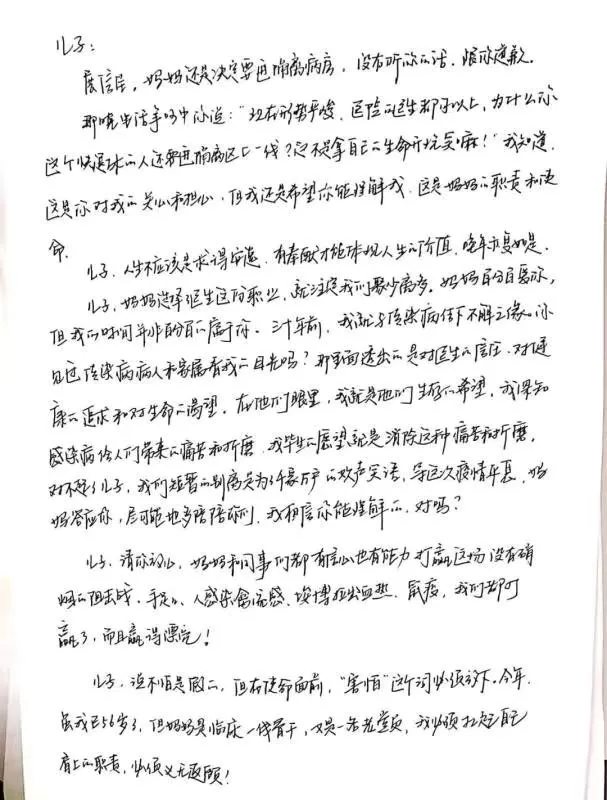 儿子：
展信佳，妈妈还是决定要进隔离病房，没有听你的话，跟你道歉。
那晚电话争吵中你说：“现在形势严峻，医院的医生都可以上，为什么你
这个快退休的人还要进隔离区上一线？您不是拿自己的生命开玩笑嘛！”我知道，
这是你对我的关心和担心，但我还是希望你能理解我，这是妈妈的职责和使
命。
儿子，人生不应该是求得安逸，有奉献才能体现人生的价值，晚年亦复如是。
儿子，妈妈选择医生这份职业，就注定我们聚少离多。妈妈百分百爱你，
但我的时间并非百分百的属于你。三十年前，我就与传染病结下不解之缘。你
见过传染病病人和家属看我的目光吗？那里面透出的是对医生的信任、对健
康的追求和对生命的渴望。在他们眼里，我就是他们生存的希望，我深知
感染病给人们带来的痛苦和折磨，我毕生的愿望就是消除这种痛苦和折磨。
对不起了儿子，我们短暂的别离是为了千家万户的欢声笑语，等这次疫情平息，妈
妈答应你，尽可能地多陪陪你们，我相信你能理解的，对吗？
儿子，请你放心，妈妈和同事们都有信心也有能力打赢这场没有硝
烟的阻击战。手足口、人感染禽流感、埃博拉出血热、鼠疫，我们都打
赢了，而且赢得漂亮！
儿子，说不怕是假的，但在使命面前，“害怕”这个词必须放下。今年
虽我已56岁了，但妈妈是临床一线骨干，又是一名老党员，我必须扛起自己
肩上的职责，必须义无返顾！